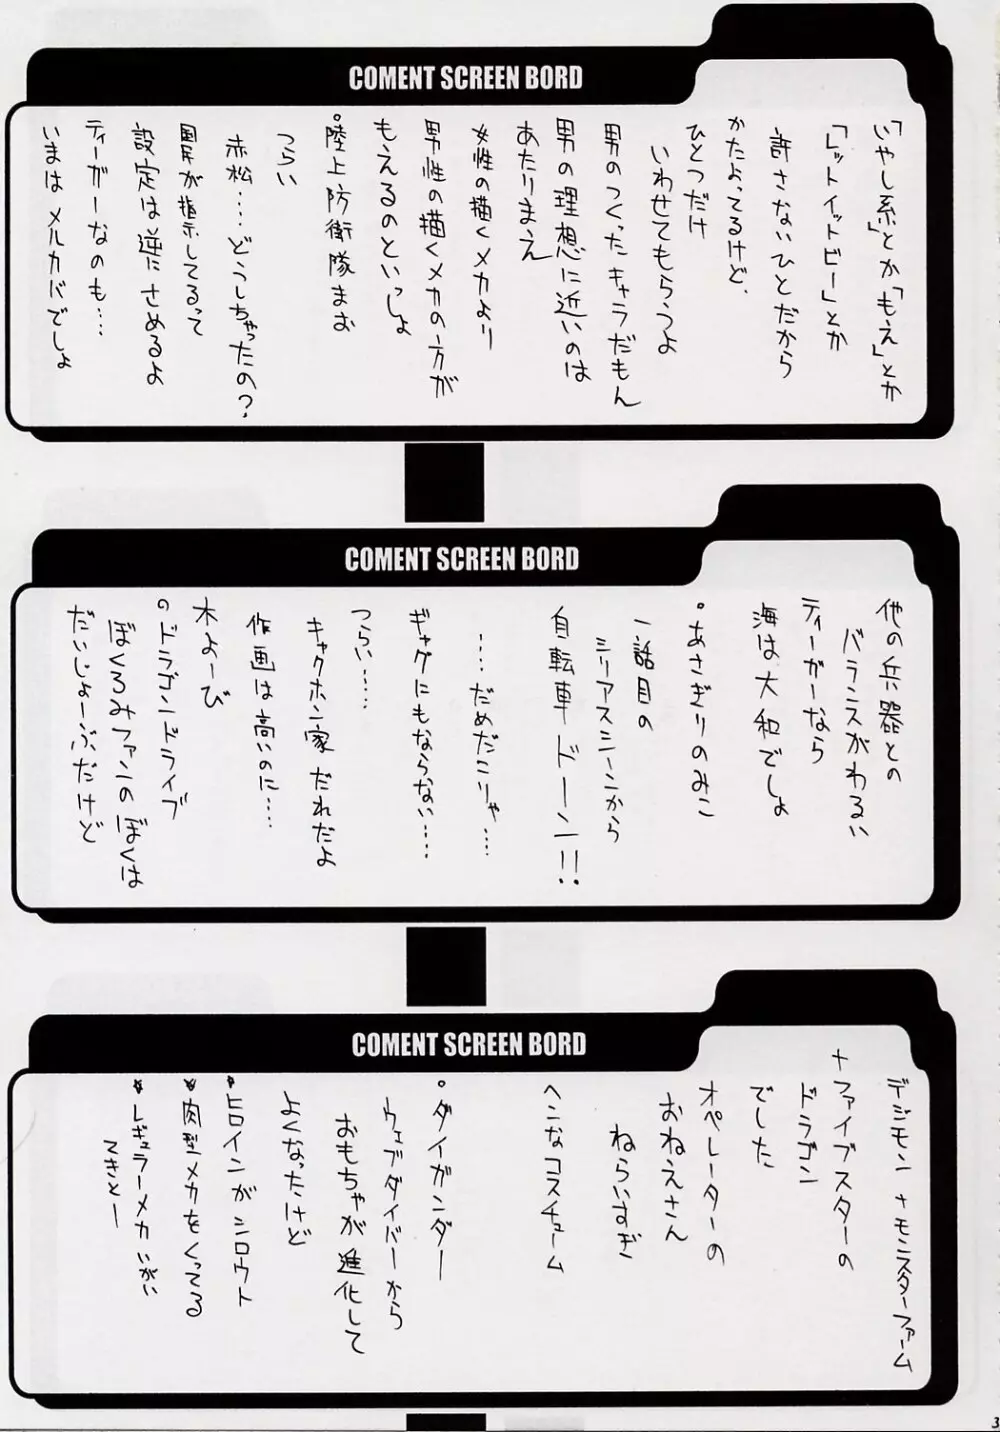 COMENT SCREEN BORD
「いやし系」とか「もえ」とか
「レットイットビー」とか
許さないひとだから
かたよってるけど、
ひとつだけ
いわせてもらうよ
男のつくったキャラだもん
男の理想に近いのは
あたりまえ
女性の描くメカより
男性の描くメカの方が
もえるのといっしょ
。陸上防衛隊まお
つらい
赤松‥‥どうしちゃったの?
が指示してるって
設定は逆にさめるよ
ティーガーなのも‥‥
いまはメルカバでしょ
COMENT SCREEN BORD
他の兵器との
バランスがわるい
ティーガーなら
海は大和でしょ
。あさぎりのみこ
一話目の
シリアスシーンから
自転車ドーン!!
‥‥だめだこりゃ‥‥
ギャグにもならない‥‥
つらい‥‥‥
キャクホン家だれだよ
作画は高いのに‥‥
木よーび
のドラゴンドライブ
ぼくろみファンのぼくは
だいじょーぶだけど
COMENT SCREEN BORD
デジモン+モンスターファーム
+ファイブスターの
ドラゴン
でした
オペレーターの
おねえさん
ねらいすぎ
ヘンなコスチューム
。ダイガンダー
ウェブダイバーから
おもちゃが進化して
よくなったけど
ヒロインがシロウト
肉型メカをくってる
レギュラーメカいがい
てきとー
3